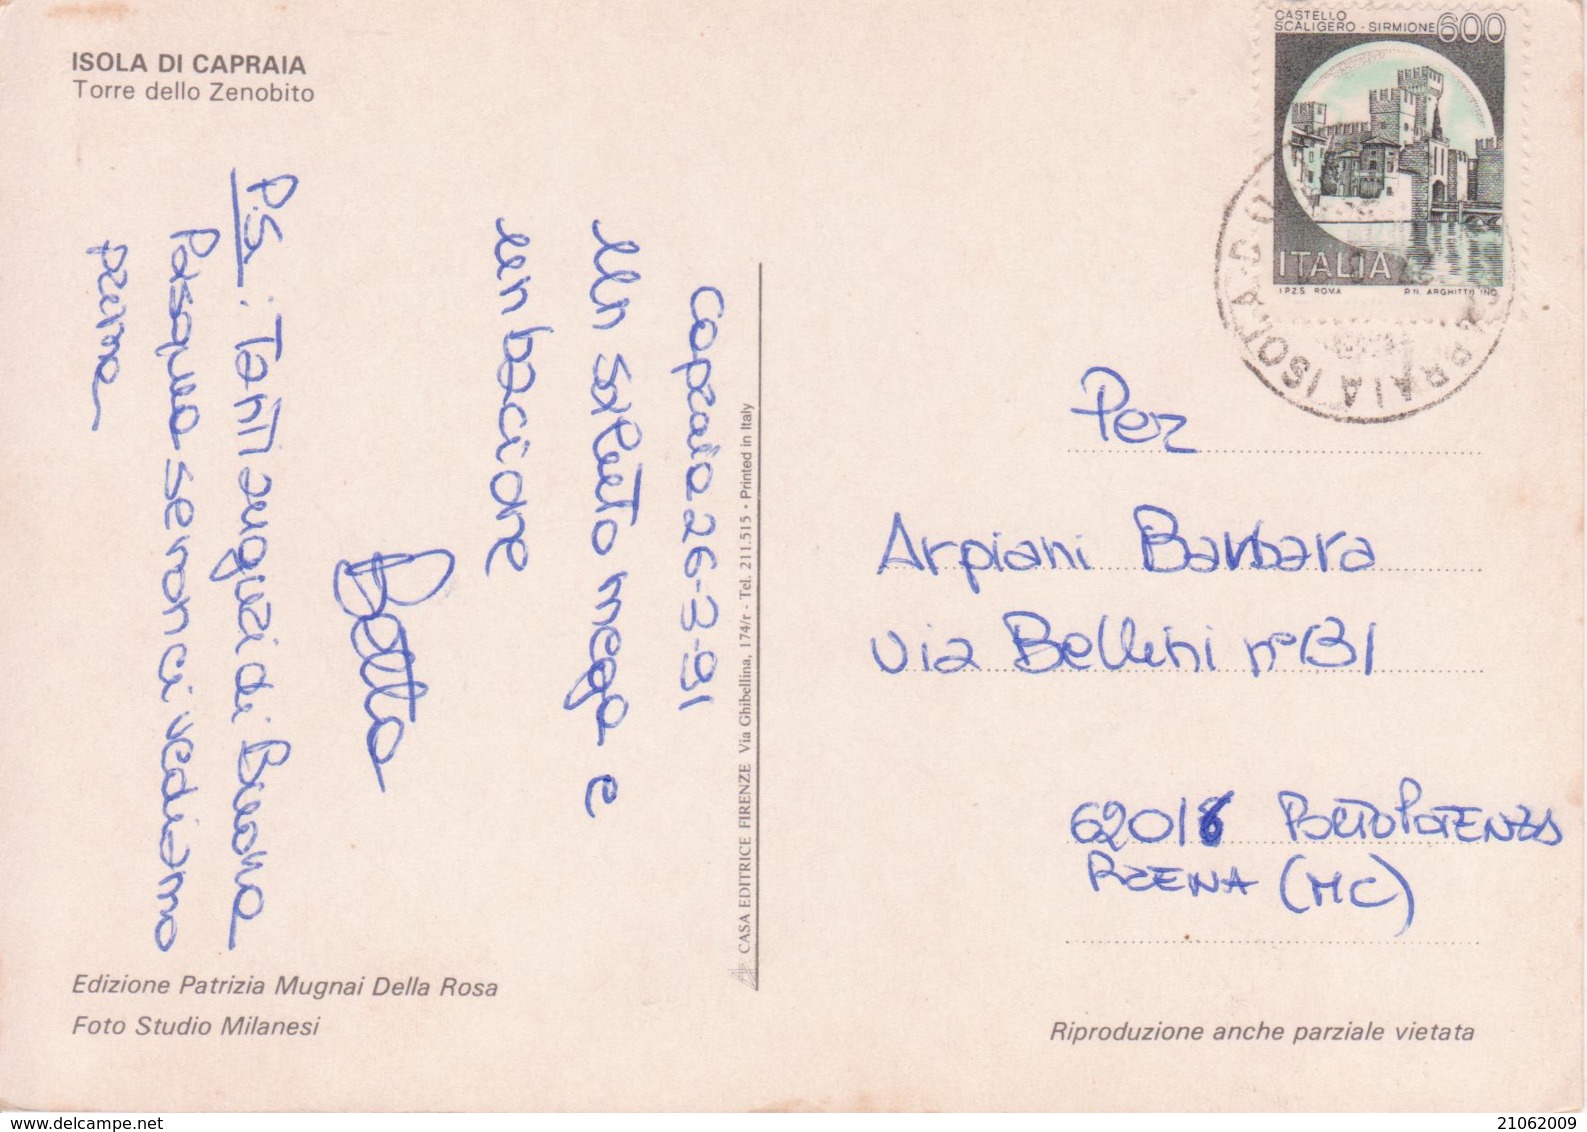 ISOLA DI CAPRAIA
Torre dello Zenobito
Capraia 26-3-91
Un saluto mega e
un bacione
Betta
P.S.: Tanti auguri di Buona
Pasqua se non ci vediamo
prima
Edizione Patrizia Mugnai Della Rosa
Foto Studio Milanesi
CASA EDITRICE FIRENZE Via Ghibellina, 174/r - Tel. 211.515 - Printed in Italy
CASTELLO
SCALIGERO - SIRMIONE 600
ITALIA
I.P.Z.S. ROMA P.N. ARGHITTU INC.
CAPRAIA ISOLA
Per
Arpiani Barbara
via Bellini n° 131
62016 PORTO POTENZA
PICENA (MC)
Riproduzione anche parziale vietata
21062009